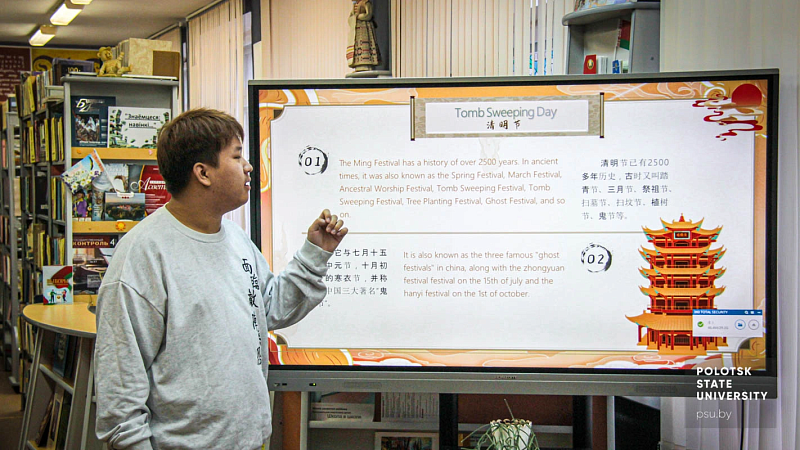 Tomb Sweeping Day
清明节
01
The Ming Festival has a history of over 2500 years. In ancient
times, it was also known as the Spring Festival, March Festival,
Ancestral Worship Festival, Tomb Sweeping Festival, Tomb
Sweeping Festival, Tree Planting Festival, Ghost Festival, and so
on.
清明节已有2500
多年历史，古时又叫踏
青节、三月节、祭祖节、
扫墓节、扫坟节、植树
节、鬼节等。
它与七月十五
中元节，十月初
的寒衣节，并称
中国三大著名"鬼
It is also known as the three famous "ghost
festivals" in china, along with the zhongyuan
festival festival on the 15th of july and the
hanyi festival on the 1st of october.
02
360 TOTAL SECURITY
"Знаёмцеся:
КОНТРОЛЬ
POLOTSK
STATE
UNIVERSITY
psu.by